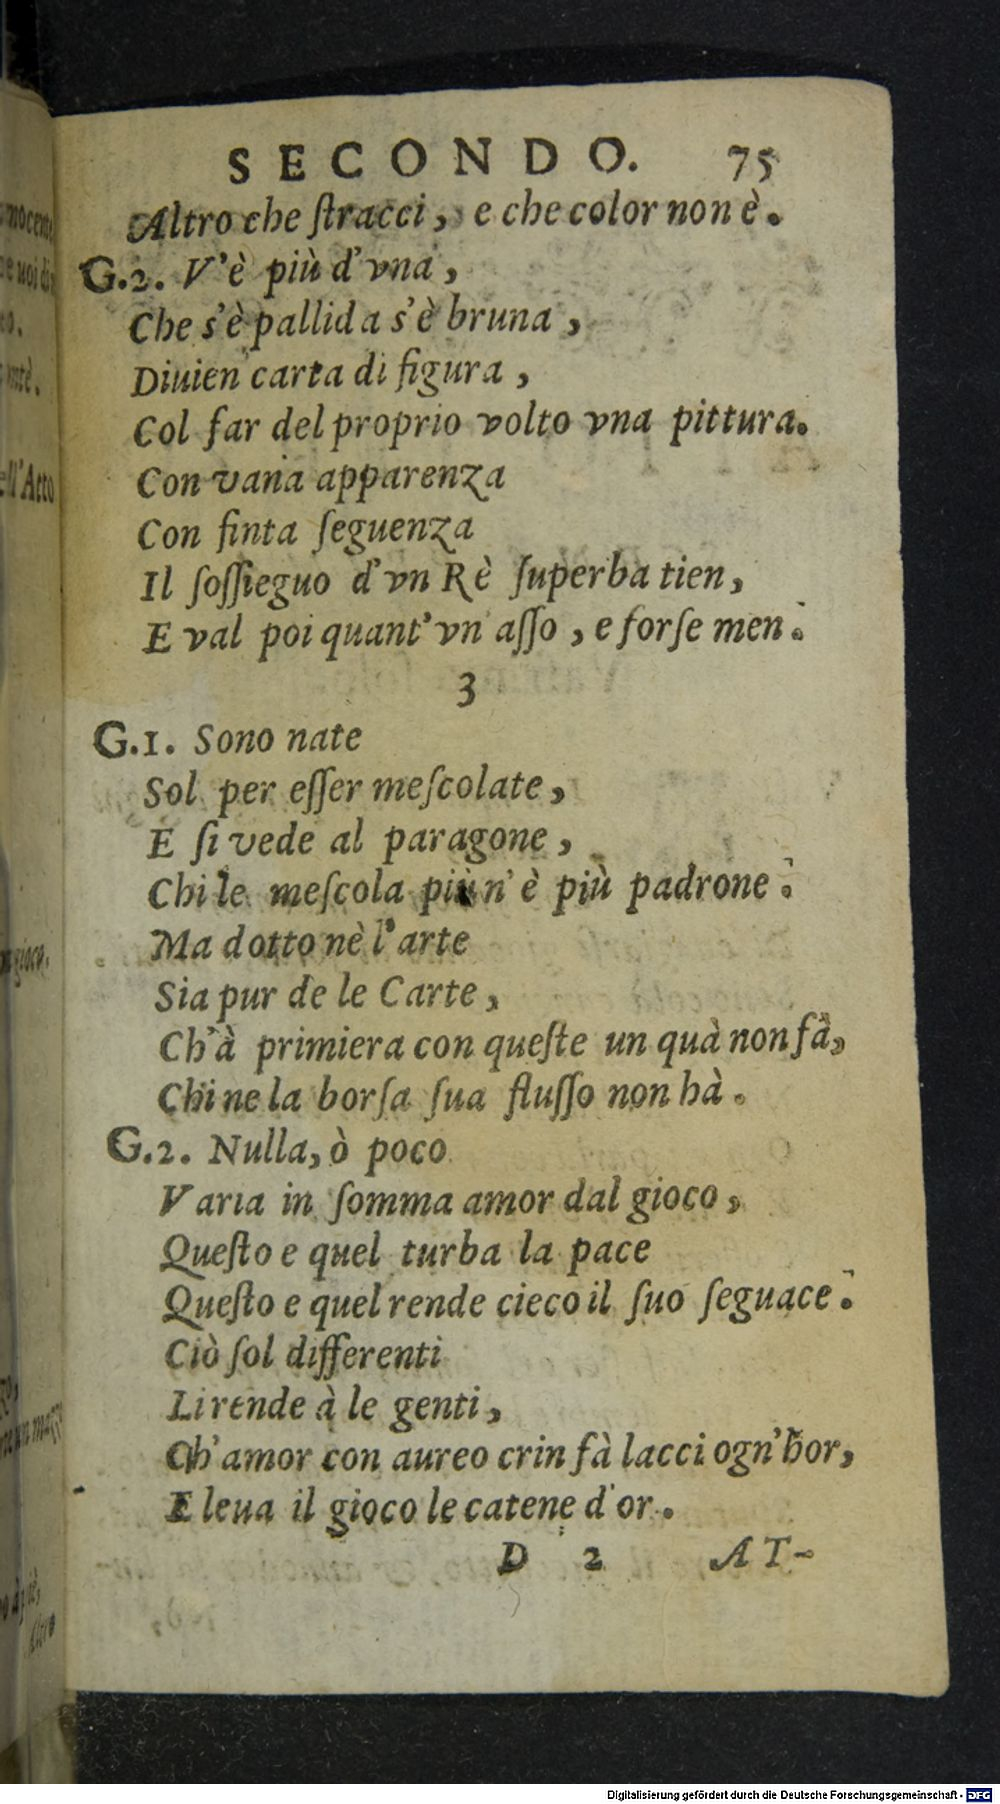 SECONDO. 75
Altro che ſtracci, e che color non è.
G.2. V'è più d'vna,
Che s'è pallida s'è bruna,
Diuien carta di figura,
Col far del proprio volto vna pittura.
Con varia apparenza
Con finta ſeguenza
Il ſoſſieguo d'vn Rè ſuperba tien,
E val poi quant'vn aſſo, e forſe men.
3
G.1. Sono nate
Sol per eſſer meſcolate,
E ſi vede al paragone,
Chi le meſcola più n'è più padrone.
Ma dotto nè l'arte
Sia pur de le Carte,
Ch'à primiera con queſte un quà non fà,
Chi ne la borſa ſua fluſſo non hà.
G.2. Nulla, ò poco
Varia in ſomma amor dal gioco,
Queſto e quel turba la pace
Queſto e quel rende cieco il ſuo ſeguace.
Ciò ſol differenti
Li rende à le genti,
Ch'amor con aureo crin fà lacci ogn'hor,
E leua il gioco le catene d'or.
D 2 AT-
nocente
e uoi di
ell'Atto
gioco.
Altro
Digitalisierung gefördert durch die Deutsche Forschungsgemeinschaft - DFG